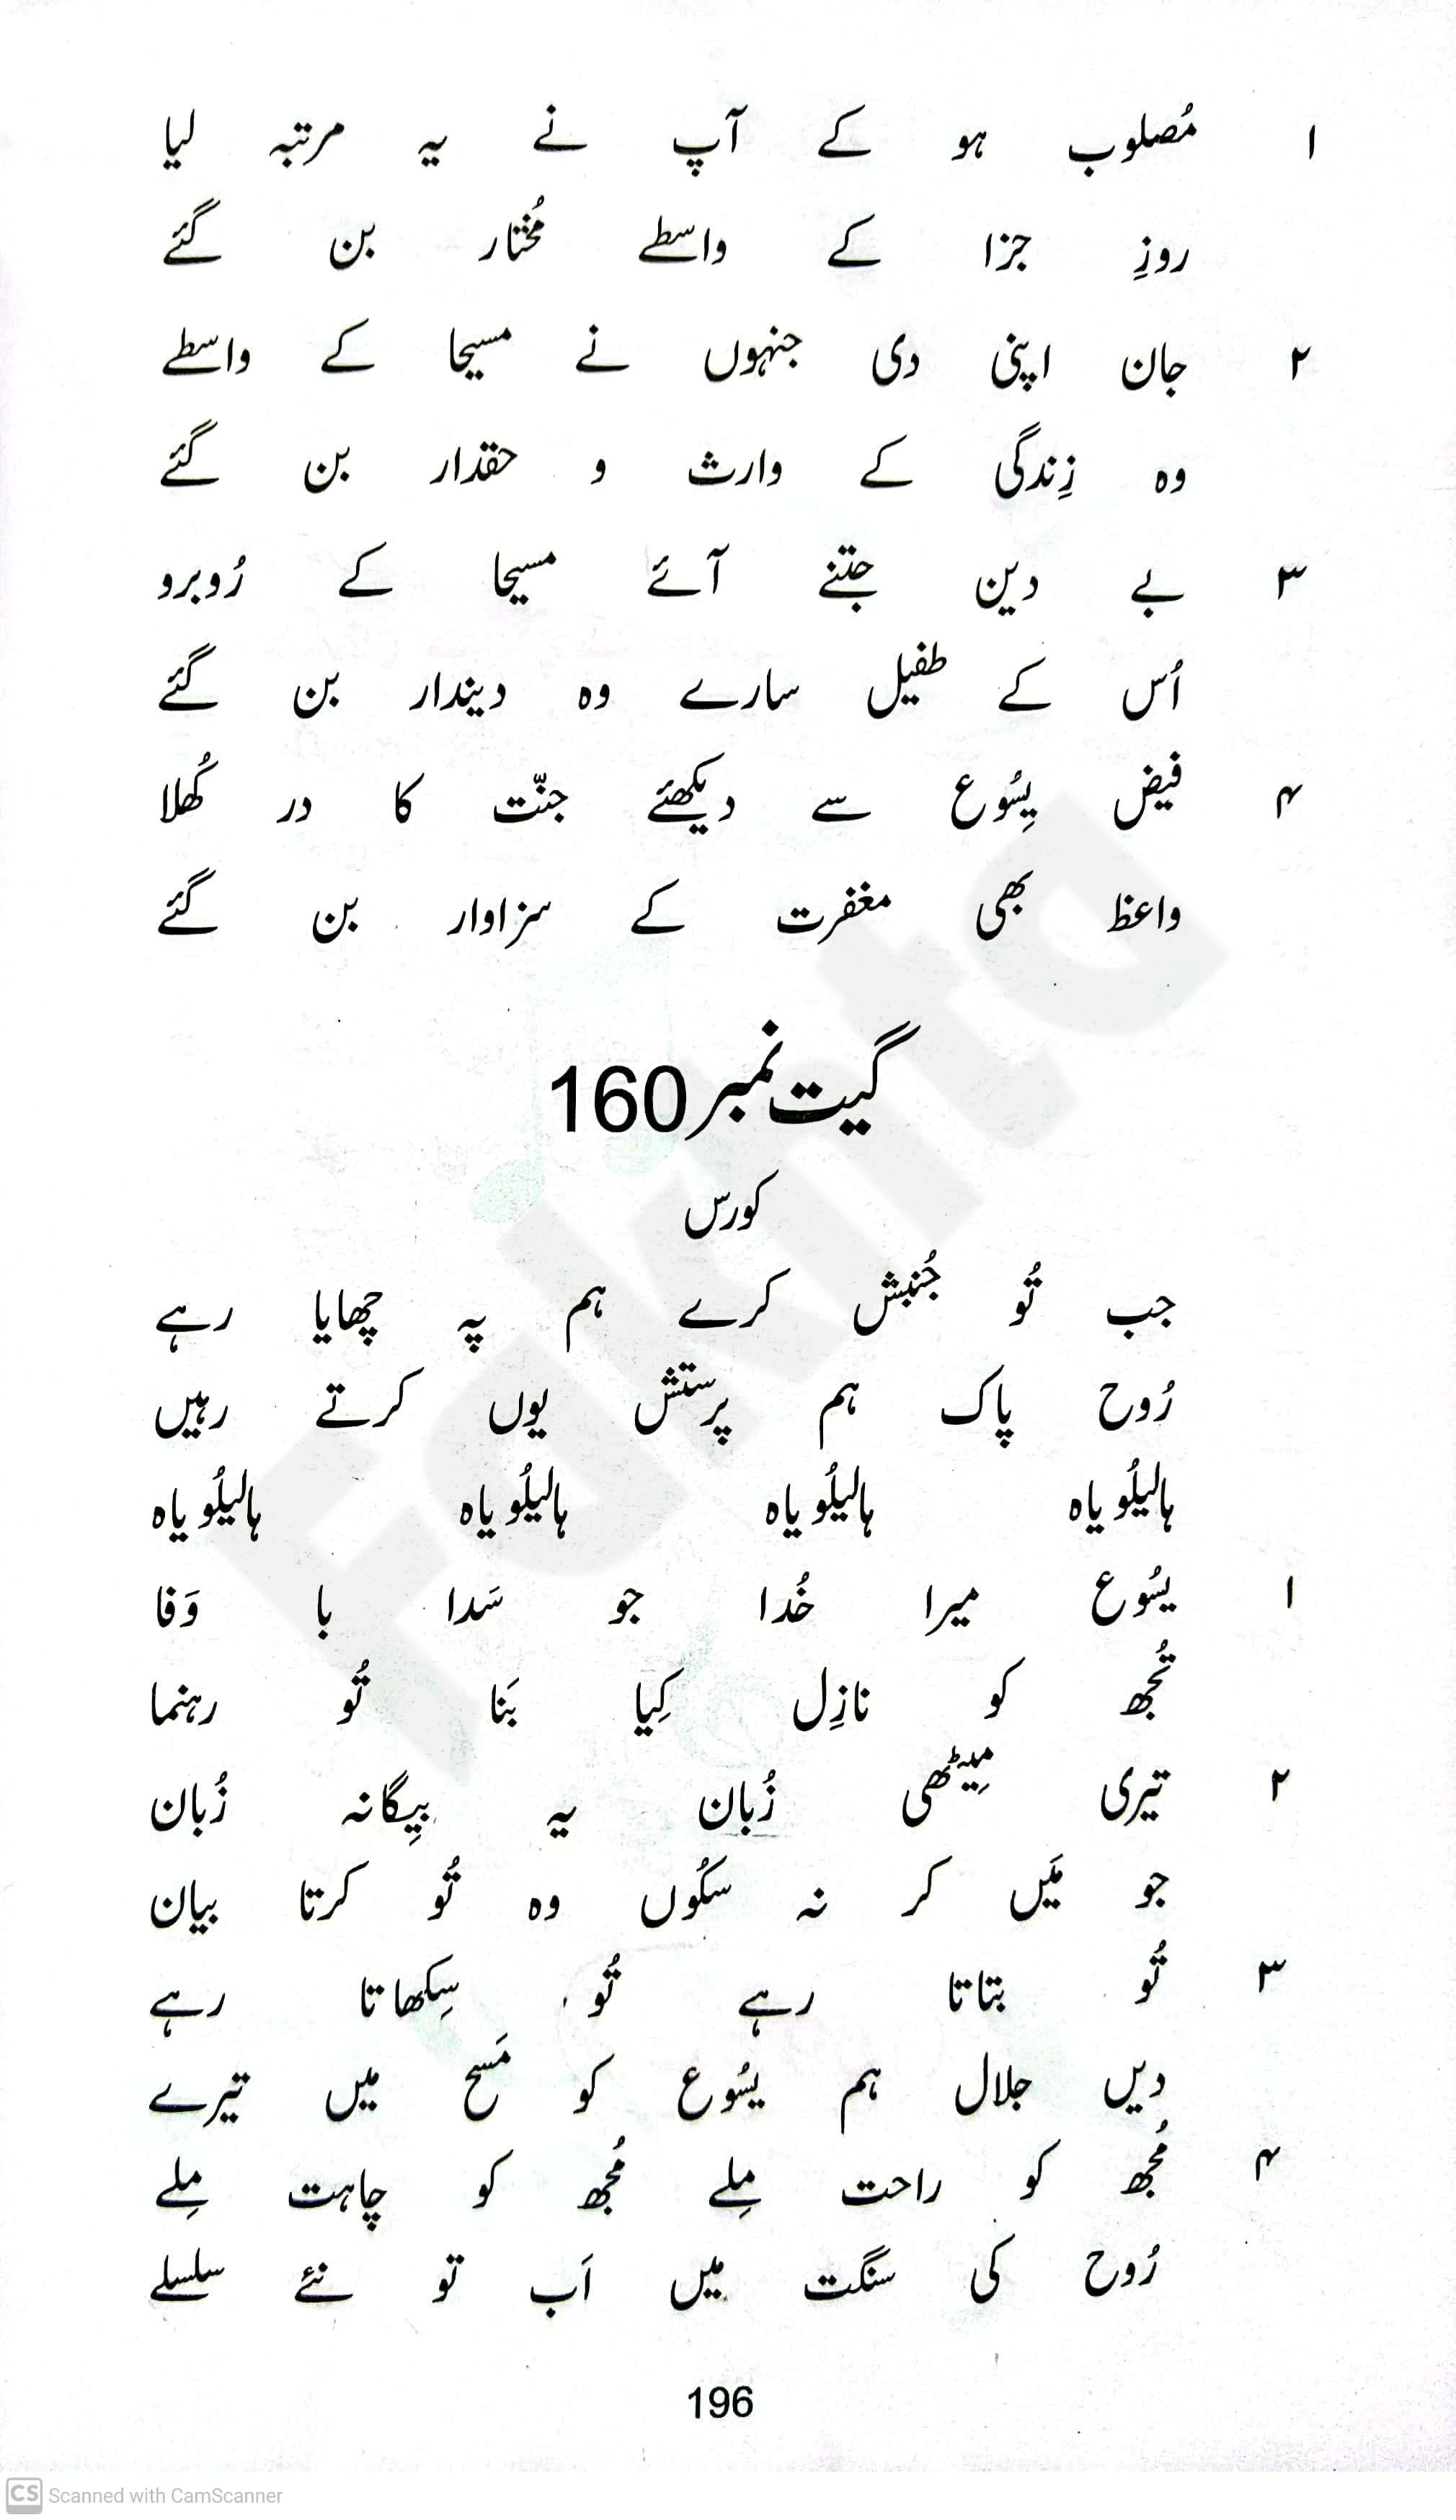 ۱ مُصلوب ہو کے آپ نے یہ مرتبہ لیا
روزِ جزا کے واسطے مُختار بن گئے
۲ جان اپنی دی جنہوں نے مسیحا کے واسطے
وہ زِندگی کے وارث و حقدار بن گئے
۳ بے دین جتنے آئے مسیحا کے رُوبرو
اُس کے طفیل سارے وہ دیندار بن گئے
۴ فیض یِسُوع سے دیکھئے جنّت کا در کُھلا
واعظ بھی مغفرت کے سزاوار بن گئے
گیت نمبر 160
کورس
جب تُو جُنبش کرے ہم پہ چھایا رہے
رُوح پاک ہم پرستش یوں کرتے رہیں
ہالیلُویاہ ہالیلُویاہ ہالیلُویاہ ہالیلُویاہ
۱ یسُوع میرا خُدا جو سَدا با وَفا
تُجھ کو نازِل کِیا بَنا تُو رہنما
۲ تیری مِیٹھی زُبان یہ بیِگانہ زُبان
جو مَیں کر نہ سکُوں وہ تُو کرتا بیان
۳ تُو بتاتا رہے تُو سِکھاتا رہے
دیں جلال ہم یسُوع کو مَسح میں تیرے
۴ مُجھ کو راحت مِلے مُجھ کو چاہت مِلے
رُوح کی سنگت میں اَب تو نئے سلسلے
196
Fakhta
CS Scanned with CamScanner